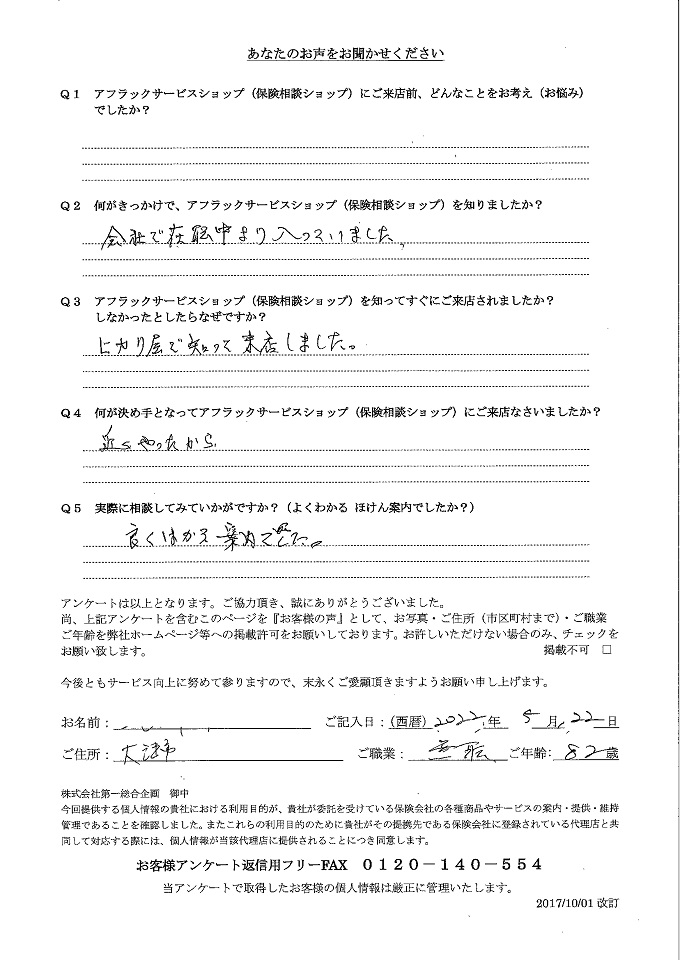 あなたのお声をお聞かせください
Q1 アフラックサービスショップ（保険相談ショップ）にご来店前、どんなことをお考え（お悩み）
でしたか？
Q2 何がきっかけで、アフラックサービスショップ（保険相談ショップ）を知りましたか？
会社で在職中より入っていました。
Q3 アフラックサービスショップ（保険相談ショップ）を知ってすぐにご来店されましたか？
しなかったとしたらなぜですか？
ヒカリ屋で知って来店しました。
Q4 何が決め手となってアフラックサービスショップ（保険相談ショップ）にご来店なさいましたか？
近くやったから
Q5 実際に相談してみていかがですか？（よくわかる ほけん案内でしたか？）
良く
アンケートは以上となります。ご協力頂き、誠にありがとうございました。
尚、上記アンケートを含むこのページを『お客様の声』として、お写真・ご住所（市区町村まで）・ご職業
ご年齢を弊社ホームページ等への掲載許可をお願いしております。お許しいただけない場合のみ、チェックを
お願い致します。 掲載不可 □
今後ともサービス向上に努めて参りますので、末永くご愛顧頂きますようお願い申し上げます。
お名前： ご記入日：（西暦）2022年 5月 22日
ご住所： 大津市 ご職業： 無職 ご年齢： 82歳
株式会社第一総合企画 御中
今回提供する個人情報の貴社における利用目的が、貴社が委託を受けている保険会社の各種商品やサービスの案内・提供・維持
管理であることを確認しました。またこれらの利用目的のために貴社がその提携先である保険会社に登録されている代理店と共
同して対応する際には、個人情報が当該代理店に提供されることにつき同意します。
お客様アンケート返信用フリーFAX 0120－140－554
当アンケートで取得したお客様の個人情報は厳正に管理いたします。
2017/10/01 改訂